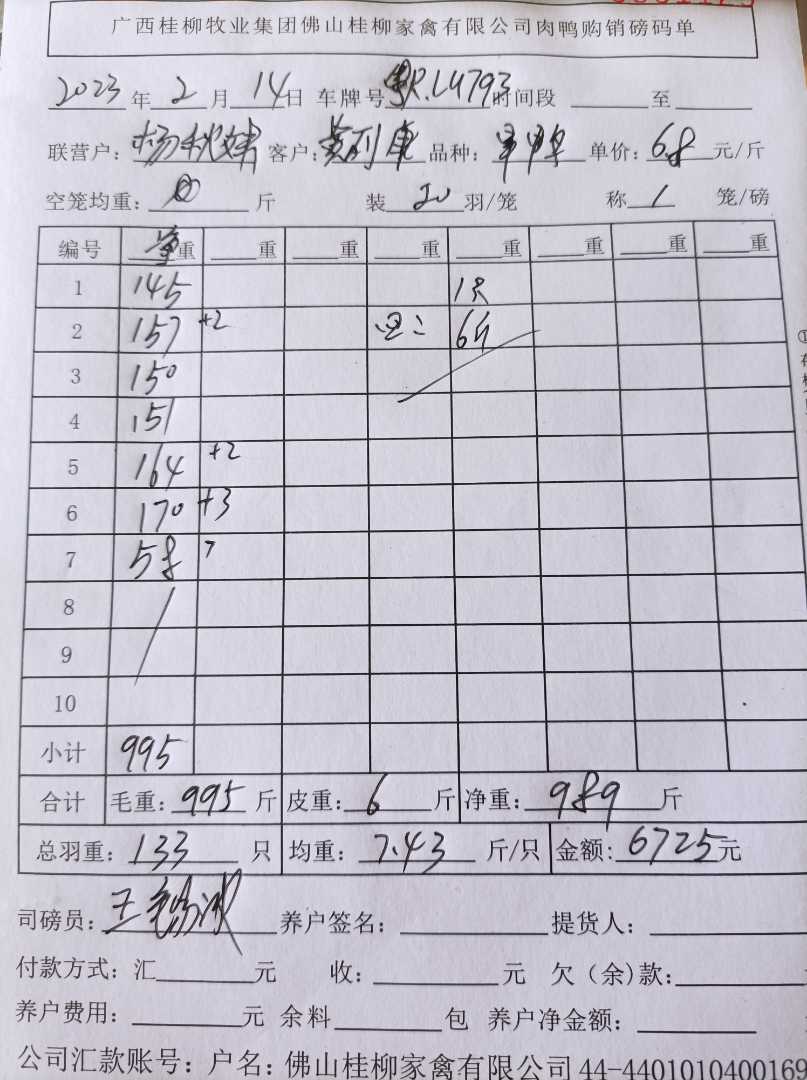 广西桂柳牧业集团佛山桂柳家禽有限公司肉鸭购销磅码单
2023年 2 月 14日 车牌号 粤R.LU793 时间段 至
联营户: 客户: 品种: 单价: 6.8 元/斤
空笼均重: 0 斤 装 20 羽/笼 称 1 笼/磅
编号 单重 重 重 重 重 重 重 重
1 145 1只
2 157 +2 死: 6斤
3 150
4 151
5 164 +2
6 170 +3
7 58 7
8
9
10
小计 995
合计 毛重: 995 斤 皮重: 6 斤 净重: 989 斤
总羽重: 133 只 均重: 7.43 斤/只 金额: 6725元
司磅员: 养户签名: 提货人:
付款方式: 汇 元 收: 元 欠（余）款:
养户费用: 元 余料 包 养户净金额:
公司汇款账号: 户名: 佛山桂柳家禽有限公司 44-4401010400169